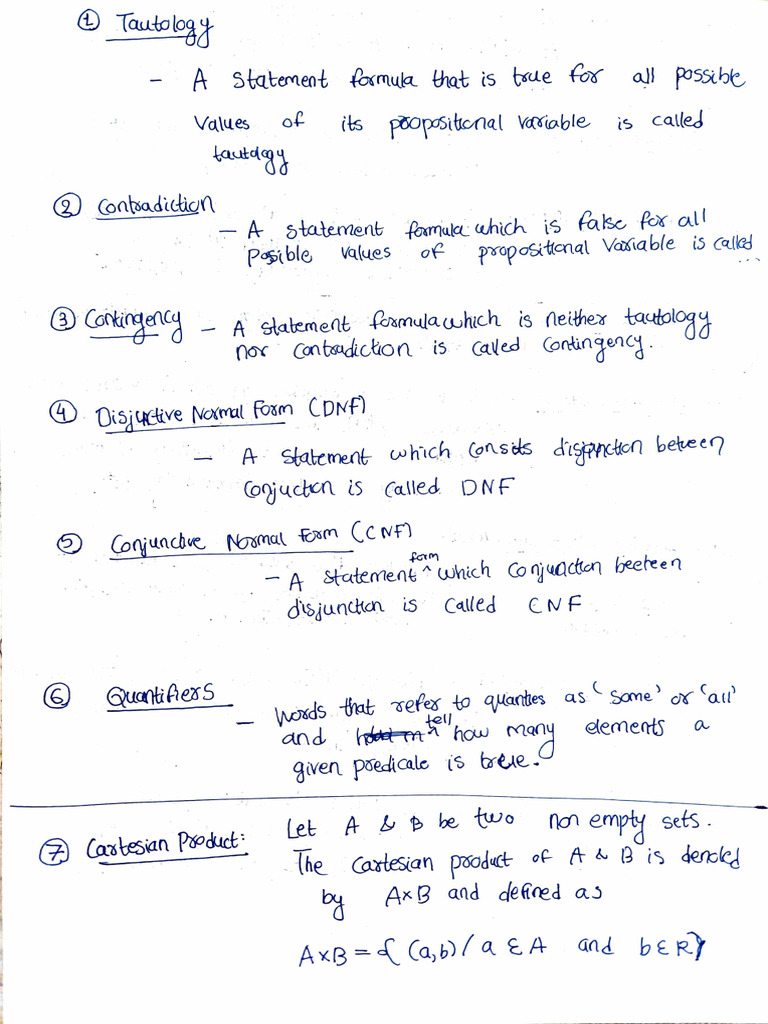 ① Tautology
- A statement formula that is true for all possible
values of its propositional variable is called
tautology
② Contradiction
- A statement formula which is false for all
possible values of propositional variable is called
③ Contingency - A statement formula which is neither tautology
nor contradiction is called contingency.
④ Disjuctive Normal Form (DNF)
- A statement which consits disjunction between
conjuction is called DNF
⑤ Conjunctive Normal Form (CNF)
- A statement ^form which conjunction beeteen
disjunction is called CNF
⑥ Quantifiers
- words that refer to quanties as 'some' or 'all'
and tell how many elements a
given predicate is treue.
⑦ Cartesian Product: Let A & B be two non empty sets.
The cartesian product of A & B is denoted
by A×B and defined as
A×B = { (a,b) / a ε A and b ε R}